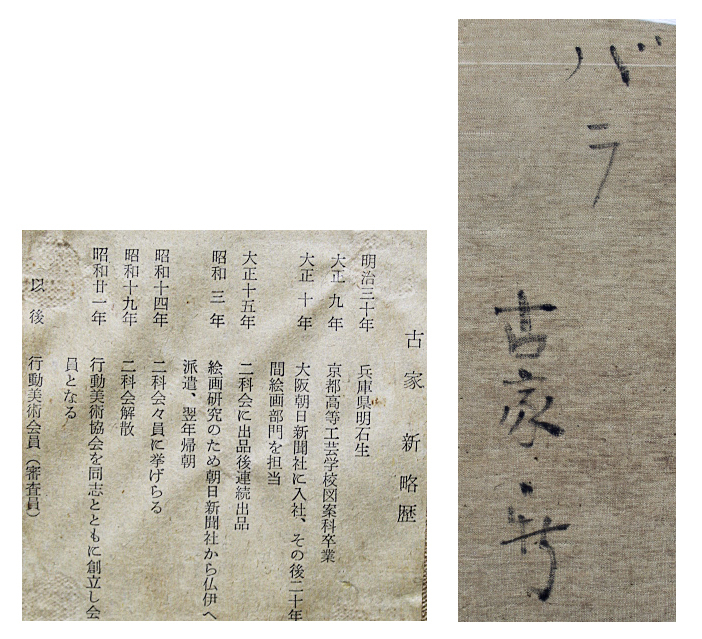 バラ
古家新
古家新略歴
明治三十年 兵庫県明石生
大正九年 京都高等工芸学校図案科卒業
大正十年 大阪朝日新聞社に入社、その後二十年
間絵画部門を担当
大正十五年 二科会に出品後連続出品
昭和三年 絵画研究のため朝日新聞社から仏伊へ
派遣、翌年帰朝
昭和十四年 二科会々員に挙げらる
昭和十九年 二科会解散
昭和廿一年 行動美術協会を同志とともに創立し会
員となる
以後 行動美術会員（審査員）